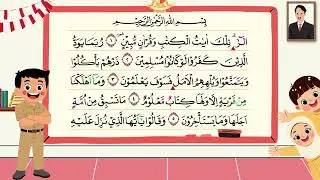 بِسْمِ اللّٰهِ الرَّحْمٰنِ الرَّحِيْمِ
الۤرٰ ۗ تِلْكَ اٰيٰتُ الْكِتٰبِ وَقُرْاٰنٍ مُّبِيْنٍ ۝١ رُبَمَا يَوَدُّ
الَّذِيْنَ كَفَرُوْا لَوْ كَانُوْا مُسْلِمِيْنَ ۝٢ ذَرْهُمْ يَأْكُلُوْا
وَيَتَمَتَّعُوْا وَيُلْهِهِمُ الْاَمَلُ فَسَوْفَ يَعْلَمُوْنَ ۝٣ وَمَآ اَهْلَكْنَا
مِنْ قَرْيَةٍ اِلَّا وَلَهَا كِتَابٌ مَّعْلُوْمٌ ۝٤ مَا تَسْبِقُ مِنْ اُمَّةٍ
اَجَلَهَا وَمَا يَسْتَأْخِرُوْنَ ۝٥ وَقَالُوْا يٰٓاَيُّهَا الَّذِيْ نُزِّلَ عَلَيْهِ